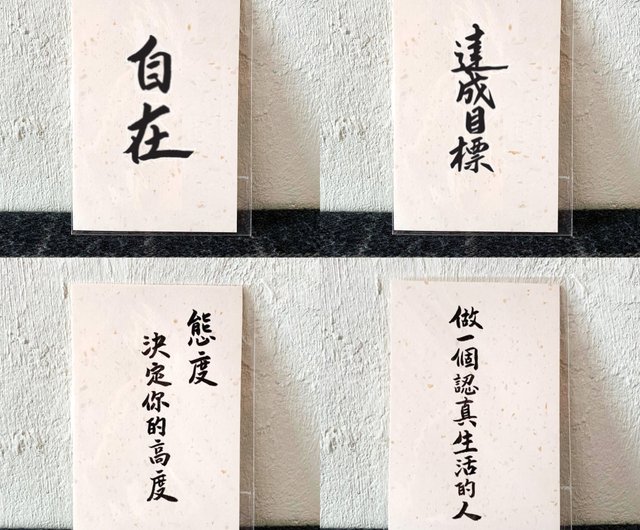 自在
達成目標
態度
決定你的高度
做一個認真生活的人